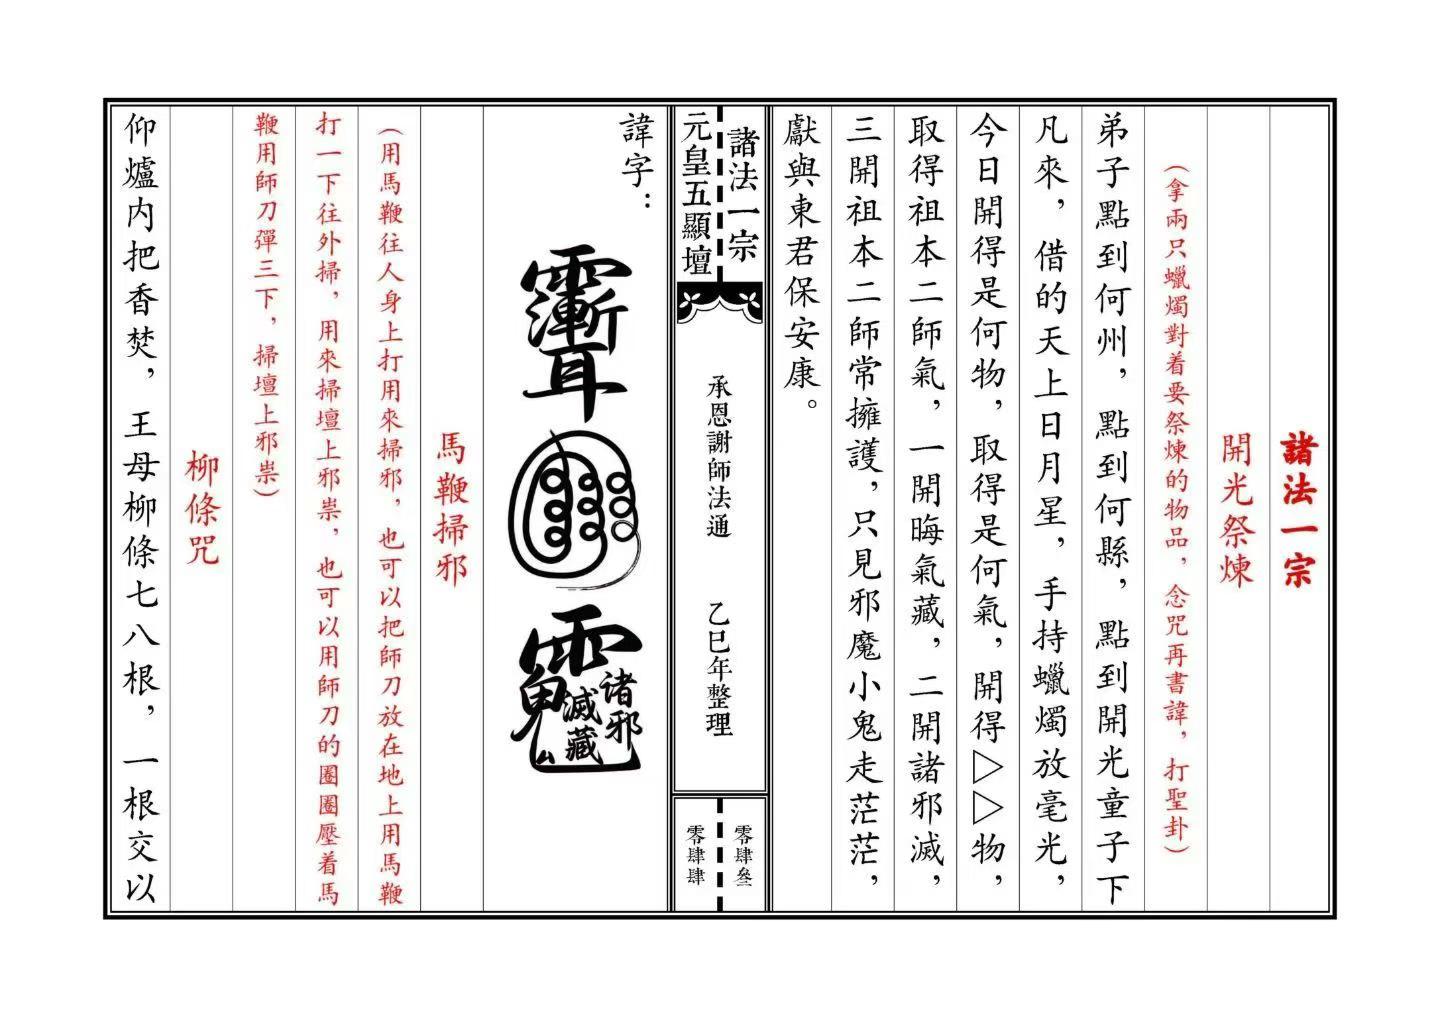 諸法一宗
開光祭煉
（拿兩只蠟燭對着要祭煉的物品，念咒再書諱，打聖卦）
弟子點到何州，點到何縣，點到開光童子下
凡來，借的天上日月星，手持蠟燭放毫光，
今日開得是何物，取得是何氣，開得▷▷物，
取得祖本二師氣，一開晦氣藏，二開諸邪滅，
三開祖本二師常擁護，只見邪魔小鬼走茫茫，
獻與東君保安康。
諸法一宗
元皇五顯壇
承恩謝師法通
乙巳年整理
零肆叁
零肆肆
諱字：
诸邪
滅藏
馬鞭掃邪
（用馬鞭往人身上打用來掃邪，也可以把師刀放在地上用馬鞭
打一下往外掃，用來掃壇上邪祟，也可以用師刀的圈圈壓着馬
鞭用師刀彈三下，掃壇上邪祟）
柳條咒
仰爐内把香焚，王母柳條七八根，一根交以